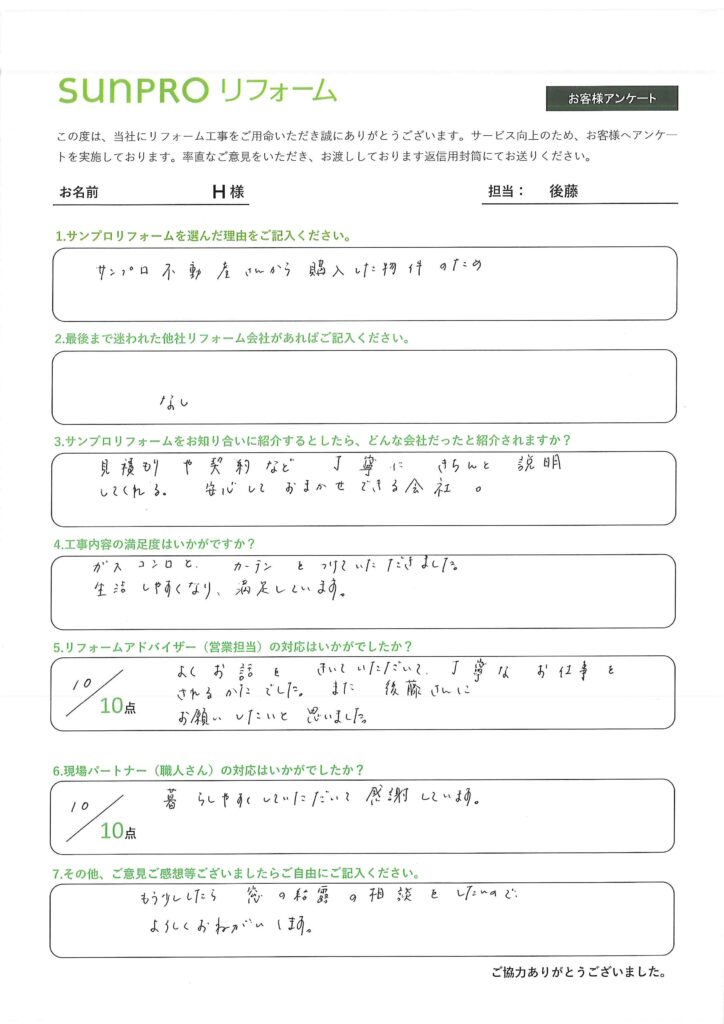 sunPRO リフォーム
お客様アンケート
この度は、当社にリフォーム工事をご用命いただき誠にありがとうございます。サービス向上のため、お客様へアンケー
トを実施しております。率直なご意見をいただき、お渡ししております返信用封筒にてお送りください。
お名前 H様 担当： 後藤
1.サンプロリフォームを選んだ理由をご記入ください。
サンプロ不動産さんから購入した物件のため
2.最後まで迷われた他社リフォーム会社があればご記入ください。
なし
3.サンプロリフォームをお知り合いに紹介するとしたら、どんな会社だったと紹介されますか？
見積もりや契約など丁寧にきちんと説明
してくれる。安心しておまかせできる会社。
4.工事内容の満足度はいかがですか？
ガスコンロと、カーテンをつけていただきました。
生活しやすくなり、満足しています。
5.リフォームアドバイザー（営業担当）の対応はいかがでしたか？
よくお話をきいていただいて、丁寧なお仕事を
されるかたでした。また後藤さんに
お願いしたいと思いました。
10/10点
6.現場パートナー（職人さん）の対応はいかがでしたか？
暮らしやすくしていただいて感謝しています。
10/10点
7.その他、ご意見ご感想等ございましたらご自由にご記入ください。
もう少ししたら窓の結露の相談をしたいので、
よろしくおねがいします。
ご協力ありがとうございました。